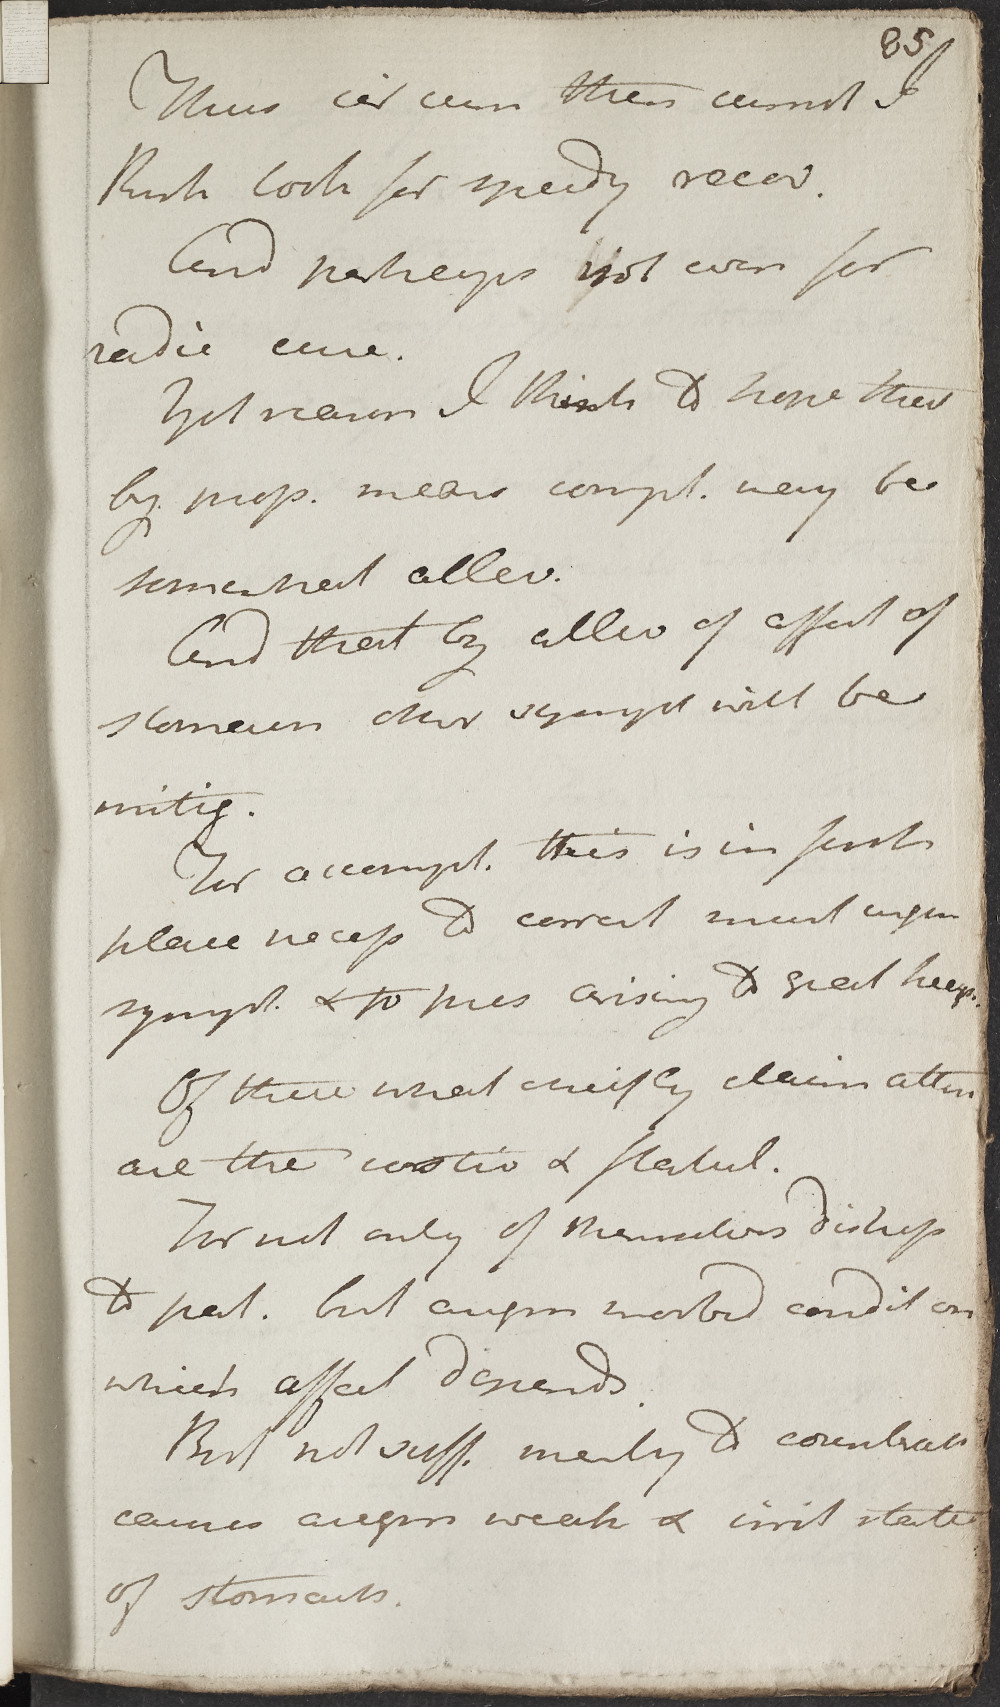 85
Thus circum then cannot I
think look for speedy recov.
And perhaps not even for
radic cure.
Yet reason I think to hope that
by prop. means compl. may be
somewhat allev.
And that by allev of affect of
stomach other sympt will be
mitig.
For accompl. this is in first
place necess to correct most urgen
sympt. & to pres arising to great heigh.
Of these what cheifly claim atten
are the costiv & flatul.
For not only of themselves distress
to pat. but augm morbid condit on
which affect depends.
But not suff. merely to counteract
causes augm weak & irrit state
of stomach.